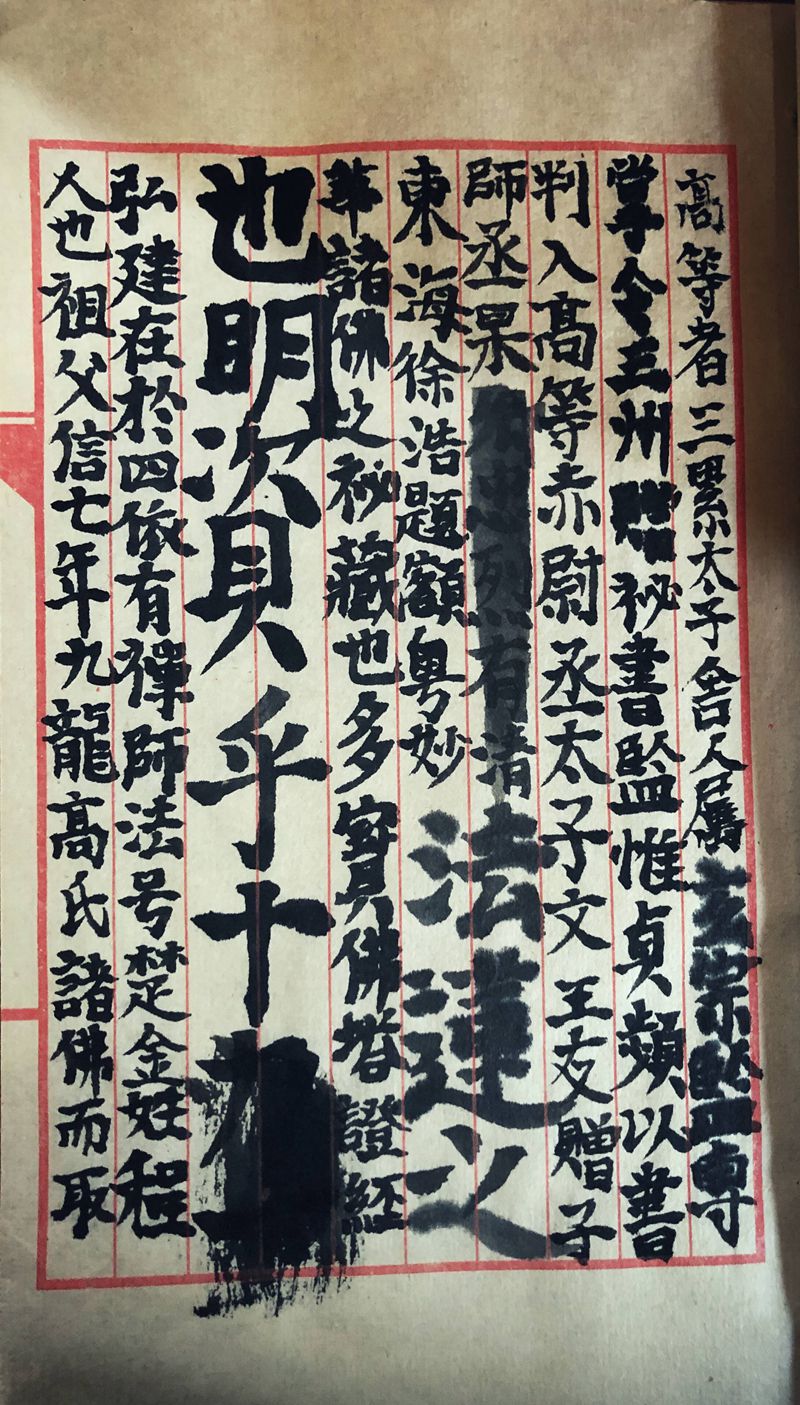 高等者三累太子舍人属玄宗監専
掌令三州贈祕書監惟貞頻以書
判入高等赤尉丞太子文王友贈子
師丞杲忠烈有清
東海徐浩題額粤妙法蓮之
華諸佛之祕藏也多寳佛塔證經
也明資乎十九
弘建在於四依有禪師法号楚金姓程
人也祖父信七年九龍高氏諸佛而取